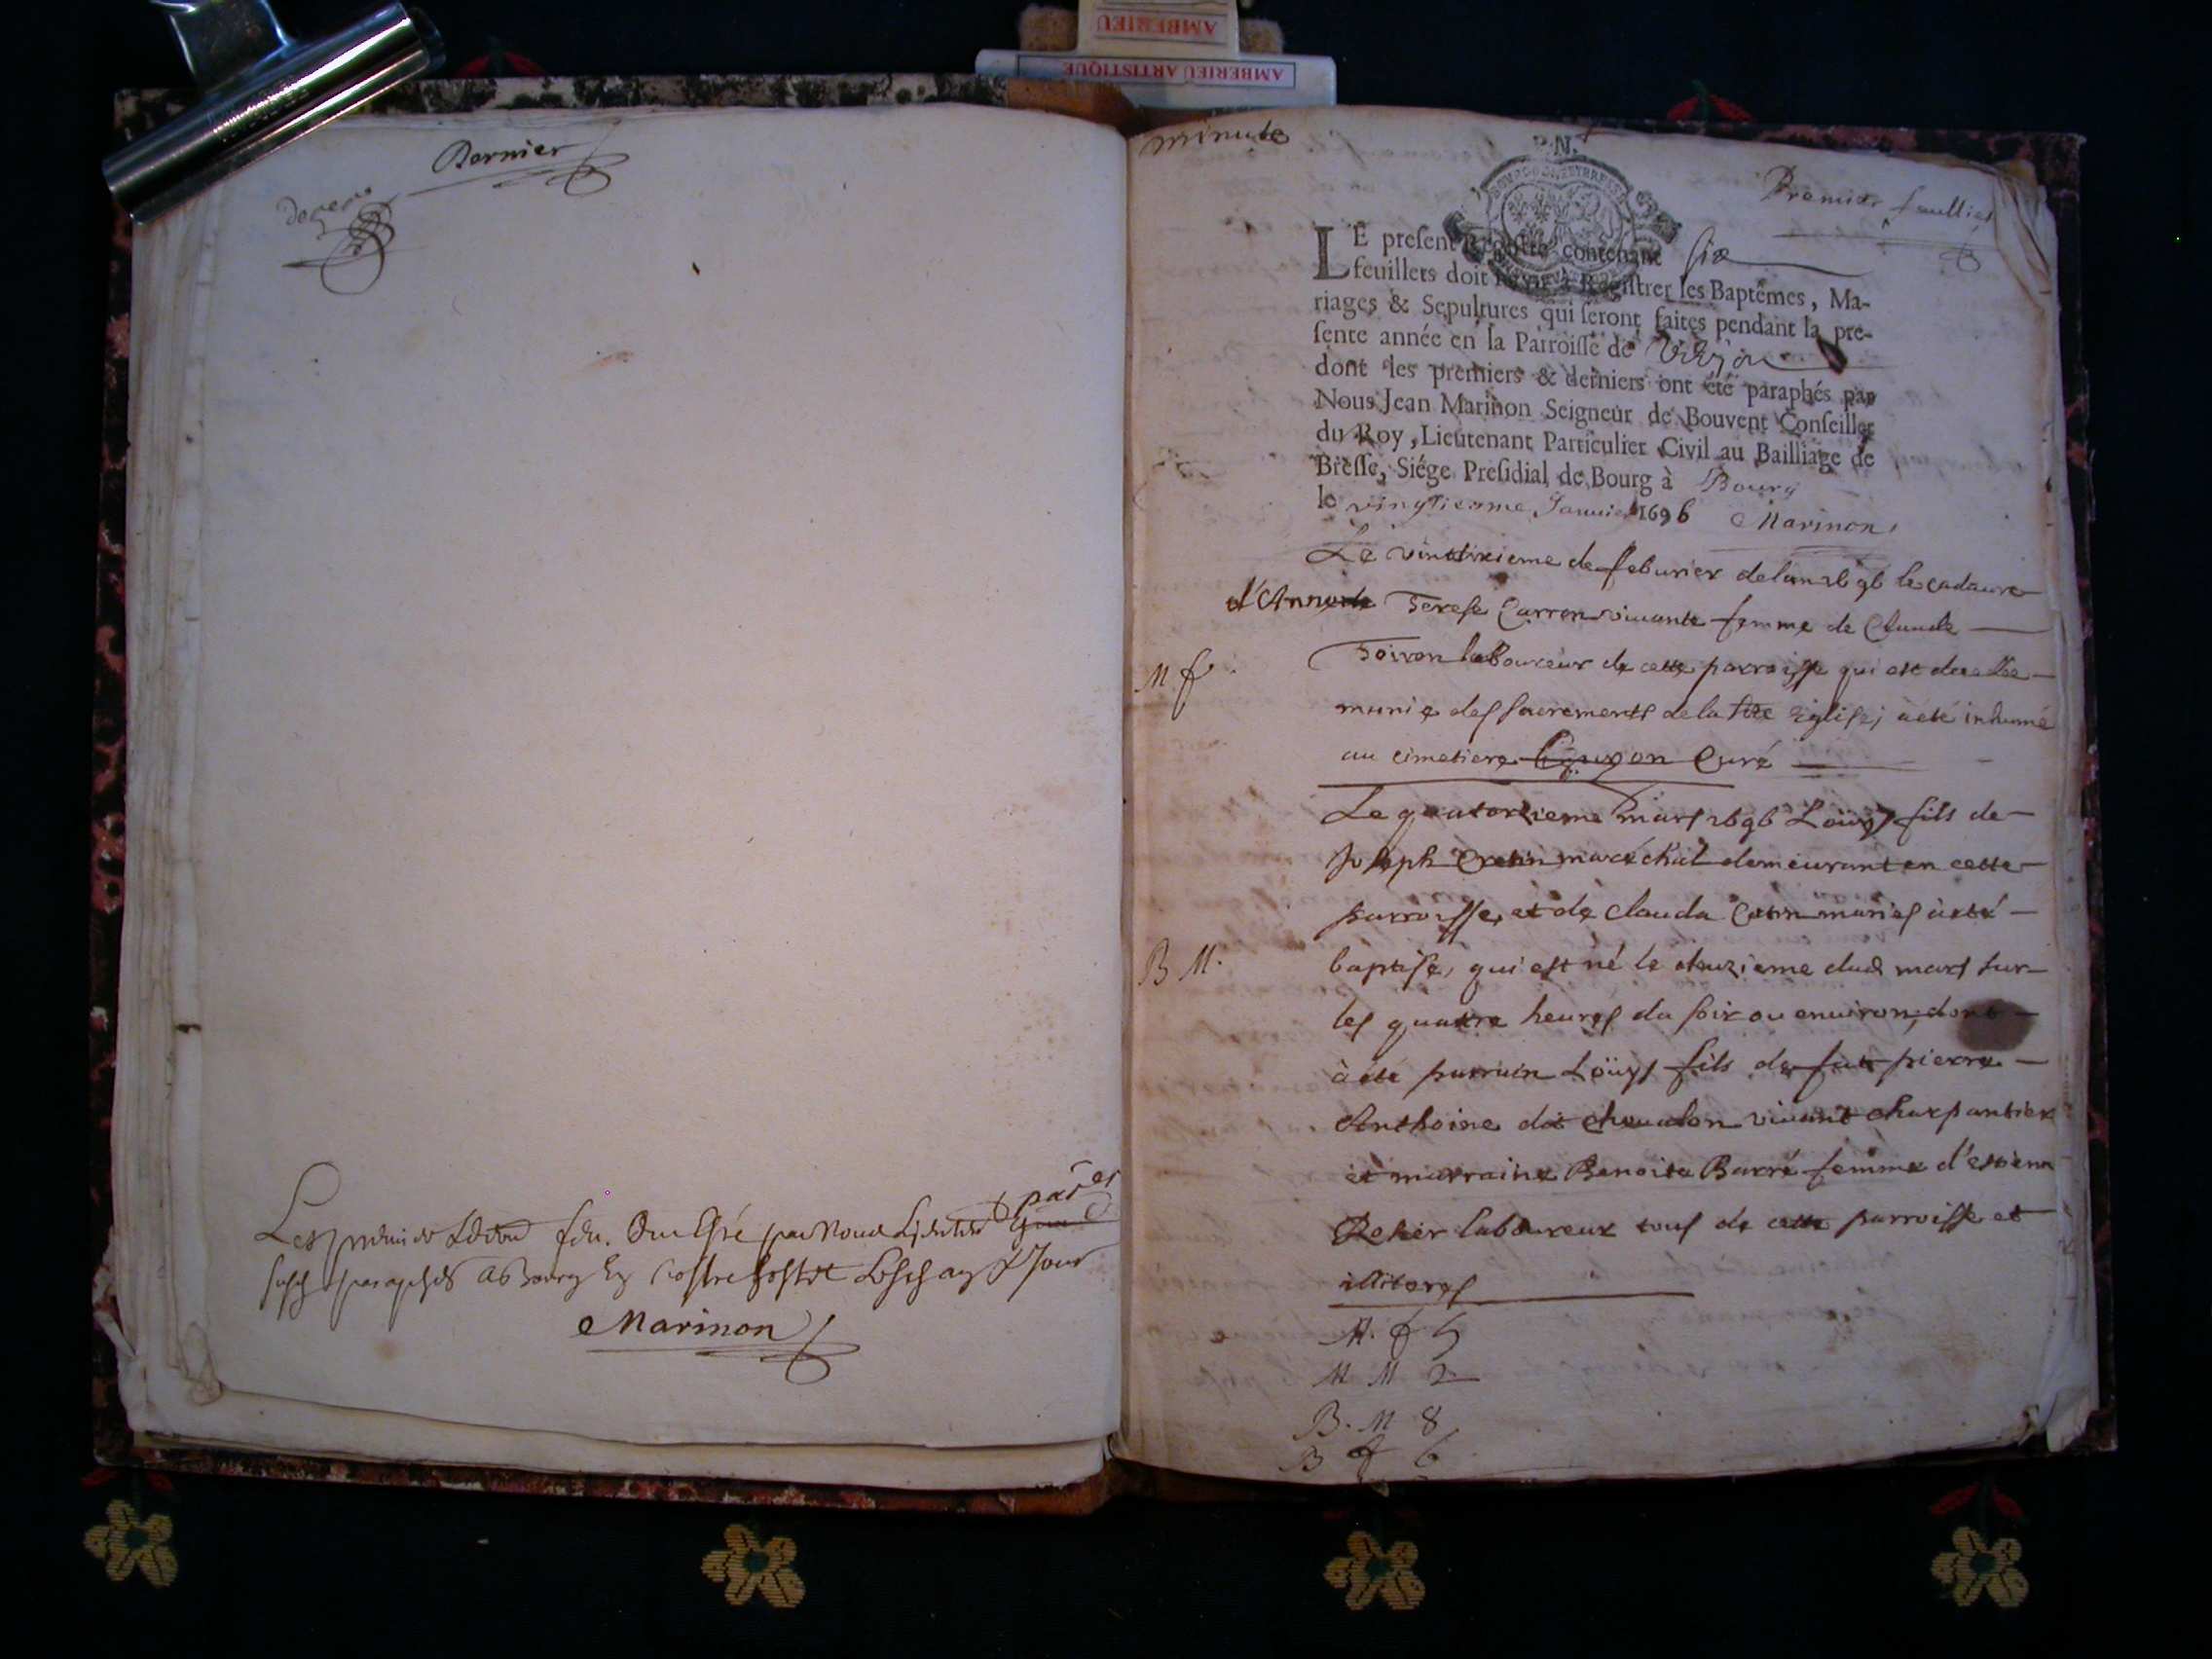 AMBERIEU
AMBERIEU ARTISTIQUE
Dernier
Marinon
minute
Premier feuillet
LE preſent Regiſtre contenant six
feuillets doit ſervir à Regiſtrer les Baptêmes, Ma-
riages & Sepultures qui ſeront faites pendant la pre-
ſente année en la Parroiſſe de
dont les premiers & derniers ont été paraphés par
Nous Jean Marinon Seigneur de Bouvent Conſeiller
du Roy, Lieutenant Particulier Civil au Bailliage de
Breſſe, Siége Preſidial de Bourg à Bourg
le vingtieme Januier 1696 Marinon
Le vintsixieme de feburier de lan 1696 le cadavre
d'Anne Terese Carron vivante femme de Claude
Toiron laboureur de cette parroisse qui est decedee
M f.
munie des sacrements de la ste Eglise, a eté inhumé
au cimetiere Curé
Le quatorzieme mars 1696 Loüys fils de
Joseph Cretin maréchal demeurant en cette
parroisse, et de Clauda mariés à eté
B M.
baptisé, qui est né le deuzieme dud mars sur
les quatre heures du soir ou environ, dont
à été parrain Loüys fils de fut pierre
Anthoine dit chevalon vivant charpantier
et marraine Benoite Barré femme d'estienn
laboureur tous de cette parroisse et
illiteres
M. f 5
M M 2
B. M 8
B f 6